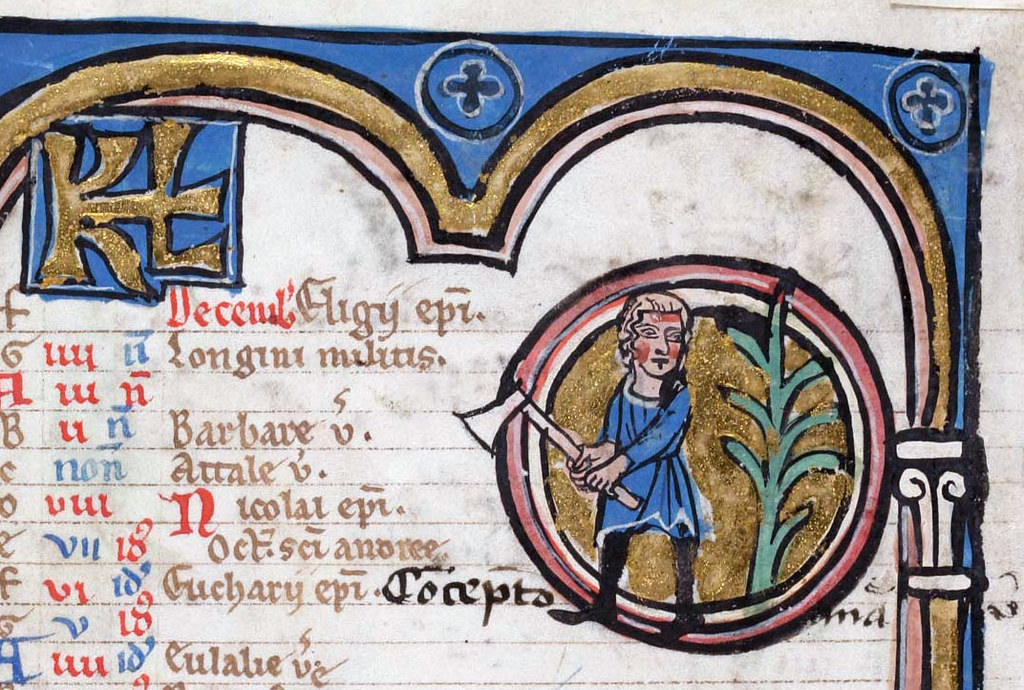 KL
f Decemb' Eligii ep̄i.
G iiii n̄ Longini militis.
A iii n̄
B ii n̄ Barbare v̄.
c non̄ Attale v̄.
D viii Nicolai ep̄i.
e vii id' Oct̄. sc̄i andree.
f vi id' Eucharii ep̄i. Cōcep̄to
G v id'
A iiii id' Eulalie v̄